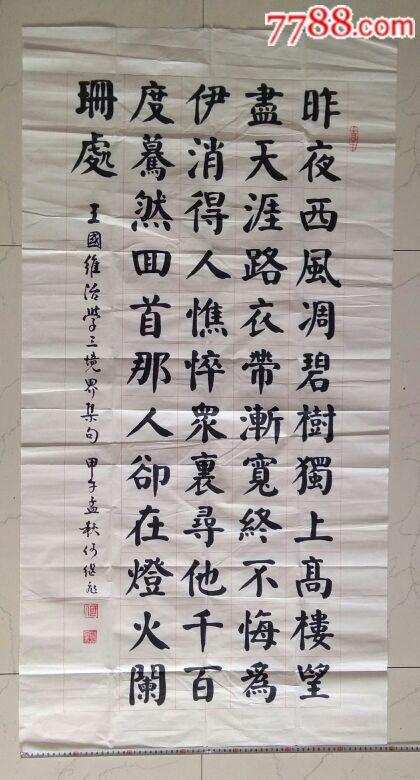 7788.com
昨夜西風凋碧樹獨上髙樓望
盡天涯路衣帶漸寬終不悔為
伊消得人憔悴衆裏尋他千百
度驀然囬首那人卻在燈火闌
珊處
王國維治學三境界集句 甲子孟秋何继